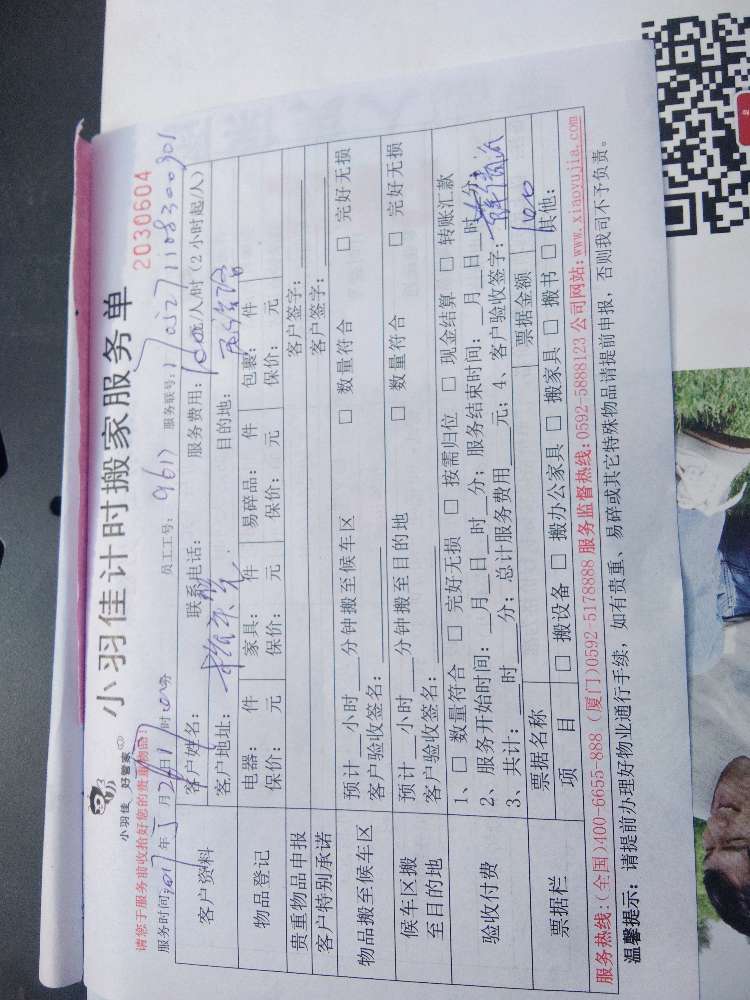 小羽佳 好管家
小羽佳计时搬家服务单
2030604
请您于服务前收拾好您的贵重物品!
服务时间:2017年5月27日17时 分 员工工号: 9617 服务联号:1705271108300901
客户资料
客户姓名: 联系电话: 服务费用: 100元/人/时(2小时起/人)
客户地址: 目的地:
物品登记
电器: 件 家具: 件 易碎品: 件 包裹: 件
保价: 元 保价: 元 保价: 元 保价: 元
贵重物品申报 客户签字:
客户特别承诺 客户签字:
物品搬至候车区
预计__小时__分钟搬至候车区 □ 数量符合 □ 完好无损
客户验收签名:
候车区搬至目的地
预计__小时__分钟搬至目的地 □ 数量符合 □ 完好无损
客户验收签名:
验收付费
1、□ 数量符合 □ 完好无损 □ 按需归位 □ 现金结算 □ 转账汇款
2、服务开始时间:__月__日__时__分;服务结束时间:__月__日__时__分;
3、共计:__时__分;总计服务费用__元;4、客户验收签字:
票据栏
票据名称 票据金额 100
项 目 □ 搬设备 □ 搬办公家具 □ 搬家具 □ 搬书 □ 其他:
服务热线:(全国)400-6655-888 (厦门)0592-5178888 服务监督热线:0592-5888123 公司网站:www.xiaoyujia.com
温馨提示: 请提前办理好物业通行手续,如有贵重、易碎或其它特殊物品请提前申报,否则我司不予负责。